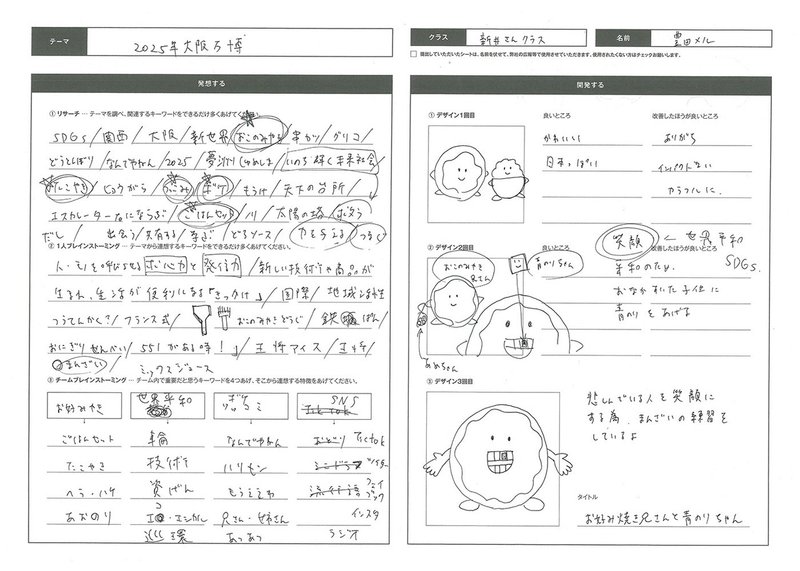 テーマ
2025年大阪万博
発想する
① リサーチ … テーマを調べ、関連するキーワードをできるだけ多くあげてください。
SDGs/関西/大阪/新世界/おこのみやき/串カツ/グリコ/
どうとんぼり/なんでやねん/2025/夢洲/いのち輝く未来社会/
たこやき/ヒョウがら/つっこみ/ボケ/もうけ/天下の台所/
エスカレーター右にならぶ/ごはんセット/川/太陽の塔/
だし/出会う/共有する//どろソース/力を与える/
② 1人ブレインストーミング … テーマから連想するキーワードをできるだけ多くあげてください。
人・モノを呼びよせる求心力と発信力/新しい技術や商品が
生まれ、生活が便利になる「きっかけ」/国際/地域活性
つうてんかく?/フランス式/おこのみやきどうぐ/鉄
おにぎりせんべい/551がある時!/王将アイス/王将/
まんざい/ミックスジュース
③ チームブレインストーミング … チーム内で重要だと思うキーワードを4つあげて、そこから連想する特徴をあげてください。
お好みやき 世界平和 SNS
ごはんセット 輪 なんでやねん おどり Tictok
たこやき 技術 ハリセン ツイッター
ヘラ・ハケ 資げん もうええわ 流行語 フェイスブック
あおのり エコ・エシカル 兄さん・姉さん インスタ
循環 あつあつ ラジオ
クラス
新井さんクラス
名前
豊田メル
提出していただいたシートは、名前を伏せて、弊社の広報等で使用させていただきます。使用されたくない方はチェックお願いします。
開発する
① デザイン1回目
良いところ
かわいい
日本っぽい
改善したほうが良いところ
ありがち
インパクトない
カラフルに、
② デザイン2回目
おこのみやき兄さん
青のりちゃん
あめちゃん
良いところ
改善したほうが良いところ
笑顔 ← 世界平和
SDGs.
平和のため、
おなかすいた子供に
青のりをあげる
③ デザイン3回目
悲しんでいる人を笑顔に
する為、まんざいの練習を
しているよ
タイトル
お好み焼き兄さんと青のりちゃん